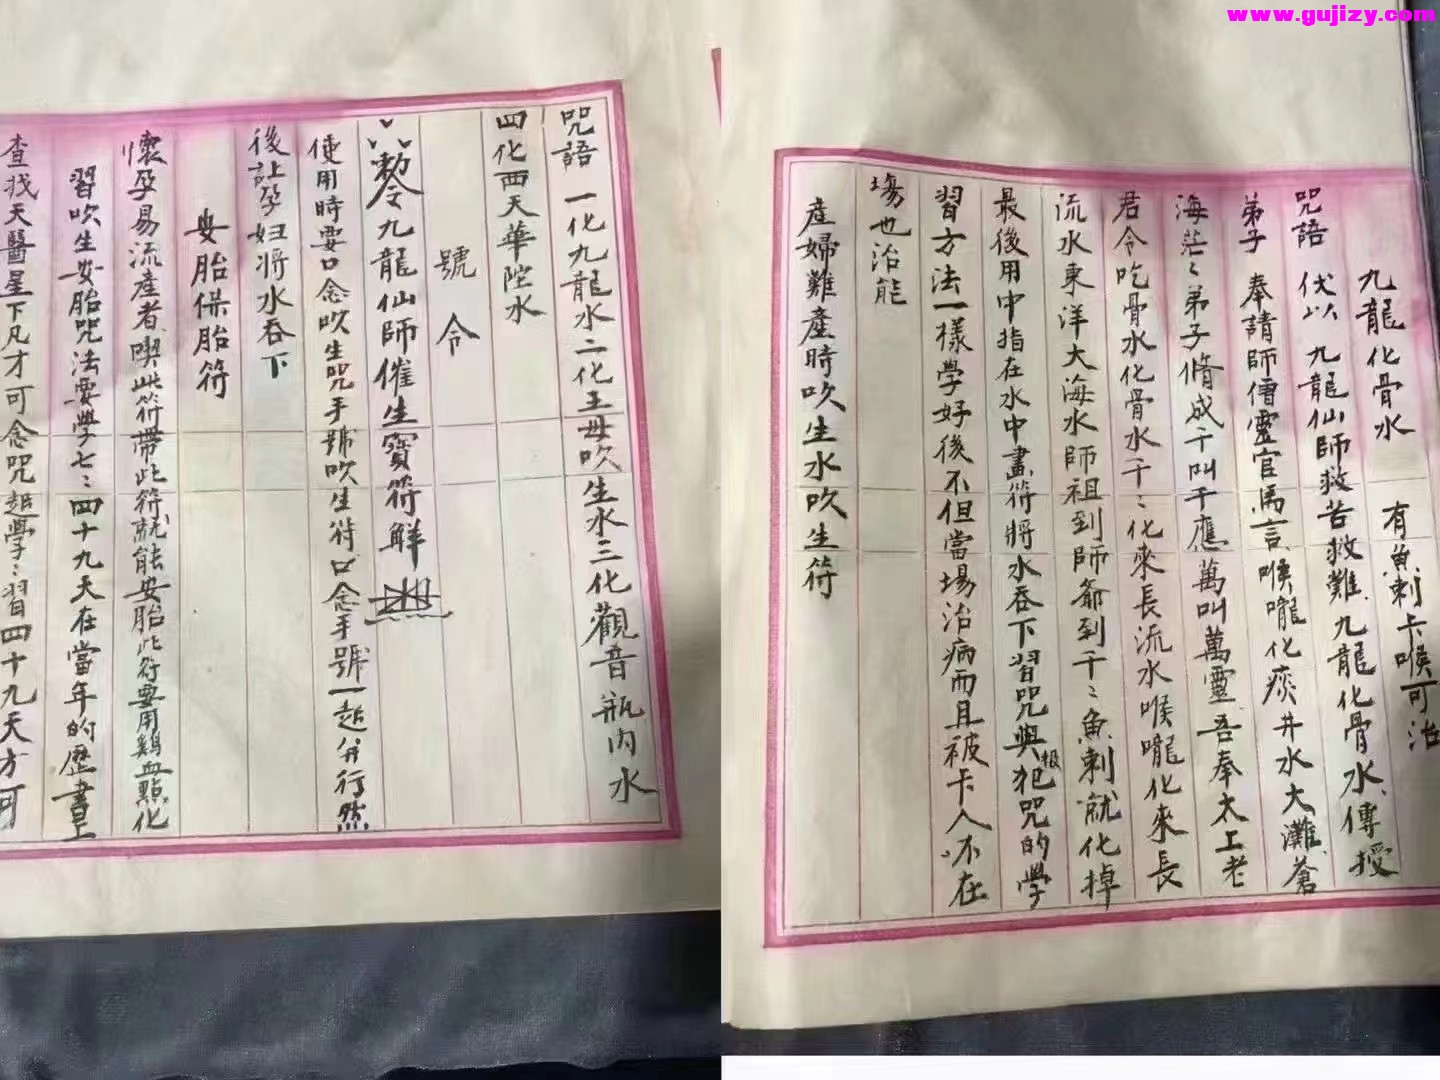 www.gujizy.com
九龍化骨水 有魚刺卡喉可治
咒語 伏以 九龍仙師救苦救難九龍化骨水傳授
弟子 奉請師傅靈官馬言喉嚨化痰井水大灘蒼
海茫〻弟子脩成千叫千應萬叫萬靈吾奉太上老
君令吃骨水化骨水千〻化來長流水喉嚨化來長
流水東洋大海水師祖到師爺到千〻魚刺就化掉
最後用中指在水中畫符將水吞下習咒與根犯咒的學
習方法一樣學好後不但當場治病而且被卡人不在
塲也治能
産婦難産時吹生水吹生符
咒語 一化九龍水二化王母吹生水三化觀音瓶内水
四化西天華陀水
號令
敕令九龍仙師催生寶符解
使用時要口念吹生咒手號吹生符口念手號一起并行然
後让孕妇将水吞下
安胎保胎符
懷孕易流産者喫此符帶此符就能安胎此符要用鷄血點化
習吹生安胎咒法要學七〻四十九天在當年的歷書上
查找天醫星下凡才可念咒起學〻習四十九天方可